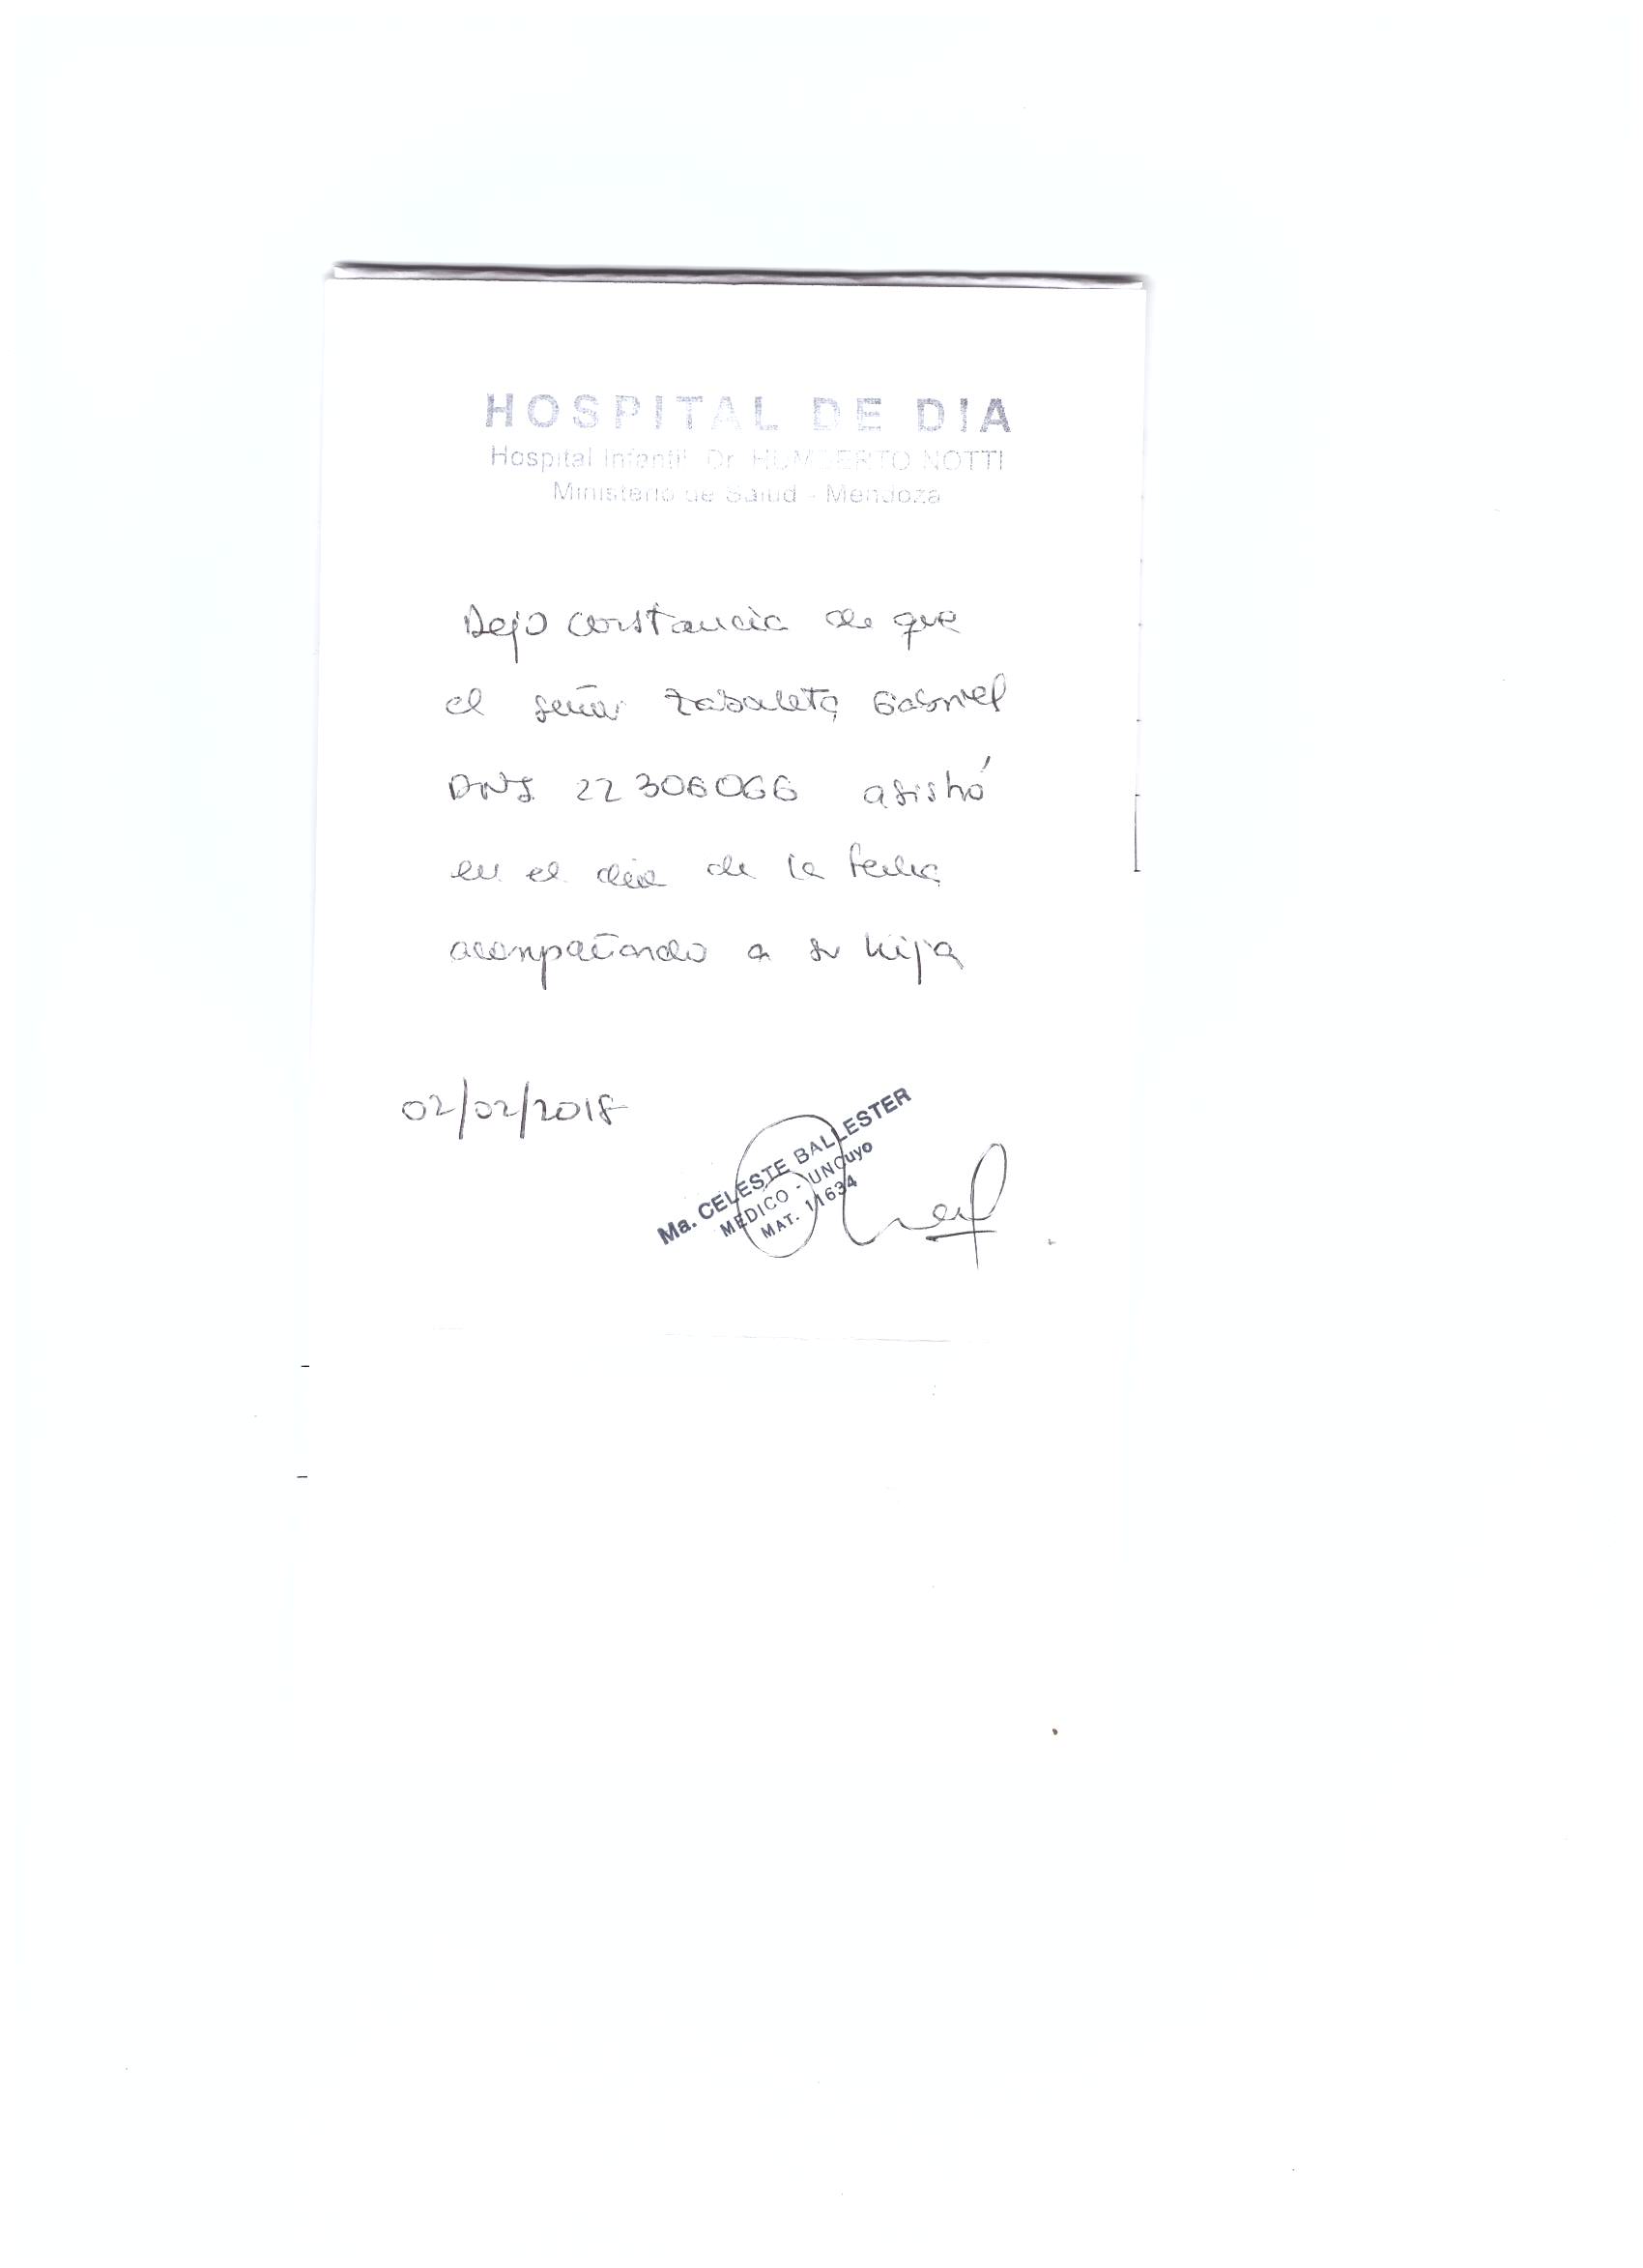 HOSPITAL DE DIA
Hospital Infantil Dr. HUMBERTO NOTTI
Ministerio de Salud - Mendoza
Dejo constancia de que
el señor Zabaleta Gabriel
DNI 22 306066 asistió
en el día de la fecha
acompañando a su hija
02/02/2018
Ma. CELESTE BALLESTER
MEDICO - UNCuyo
MAT. 11634